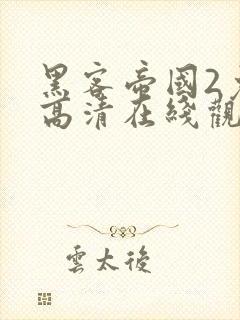 黑客帝國2
高清在綫觀
雲太後